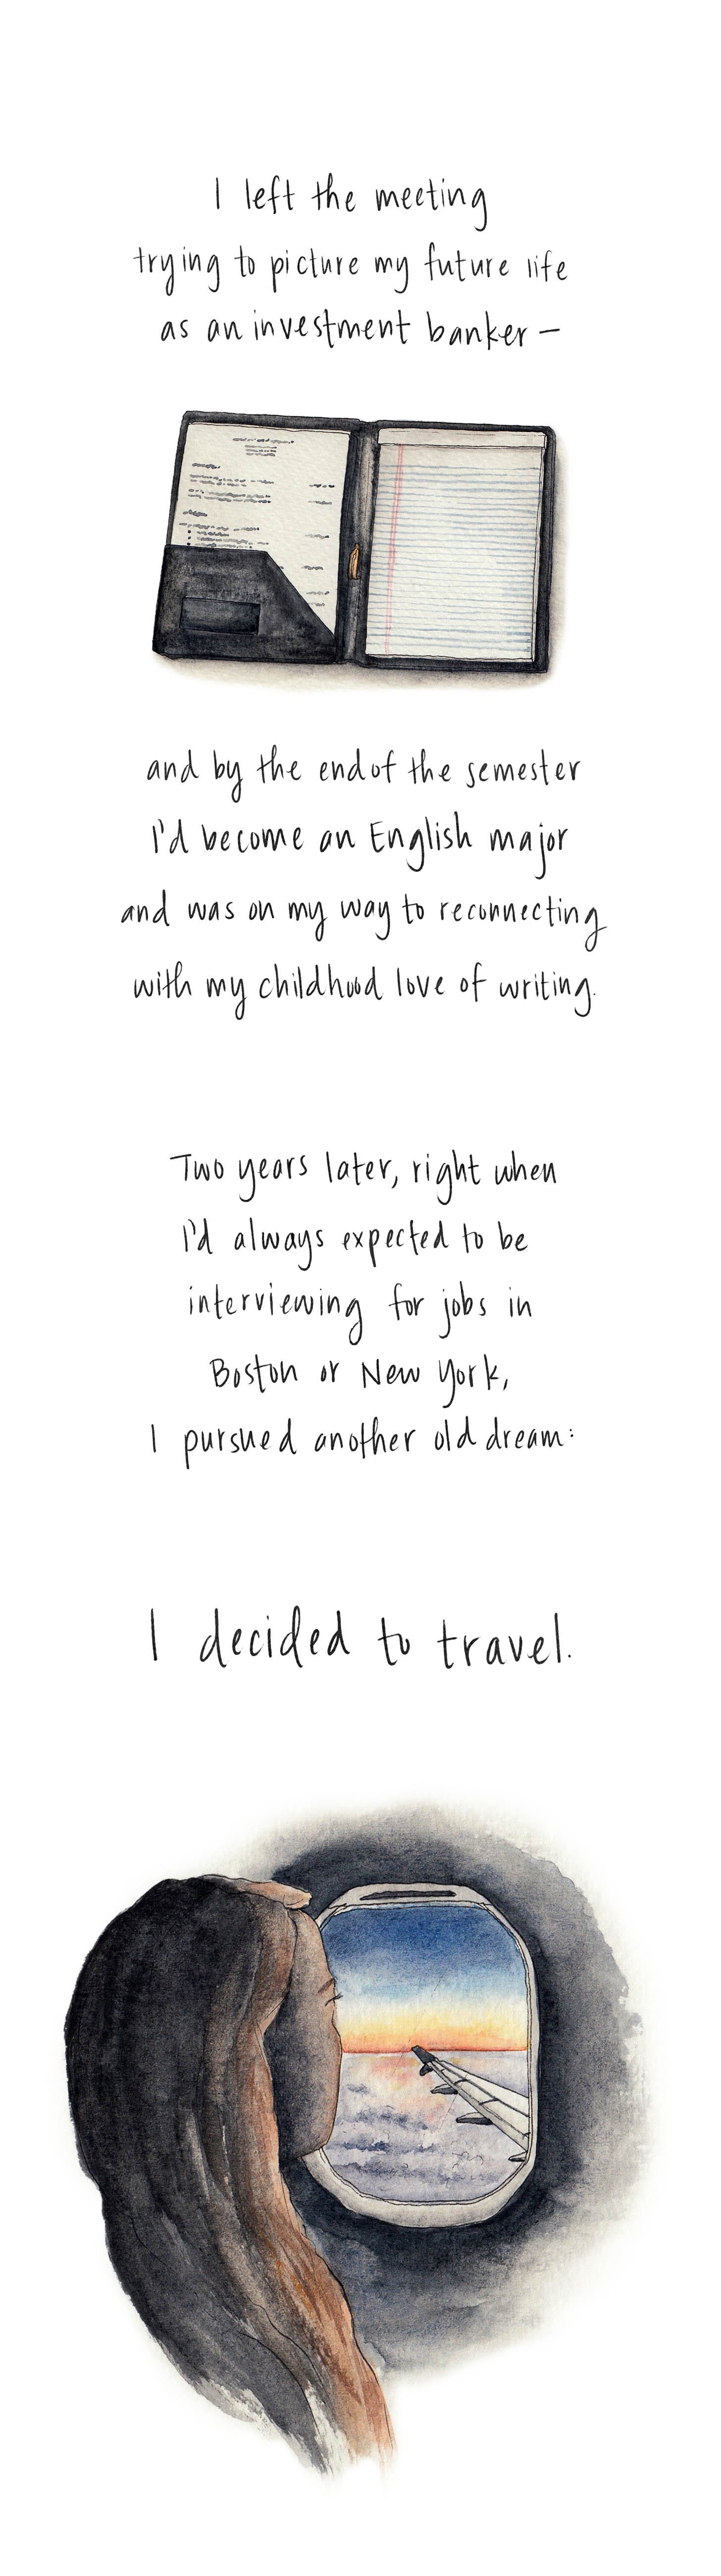 I left the meeting
trying to picture my future life
as an investment banker –
and by the end of the semester
I'd become an English major
and was on my way to reconnecting
with my childhood love of writing.
Two years later, right when
I'd always expected to be
interviewing for jobs in
Boston or New York,
I pursued another old dream:
I decided to travel.